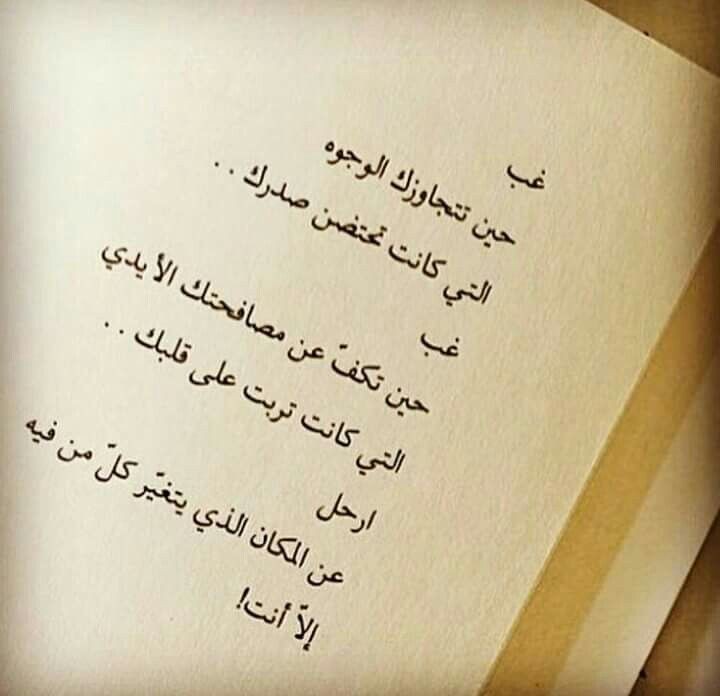 غب
حين تتجاوزك الوجوه
التي كانت تحتضن صدرك . .
غب
حين تكفّ عن مصافحتك الأيدي
التي كانت تربت على قلبك . .
ارحل
عن المكان الذي يتغيّر كلّ من فيه
إلاّ أنت!